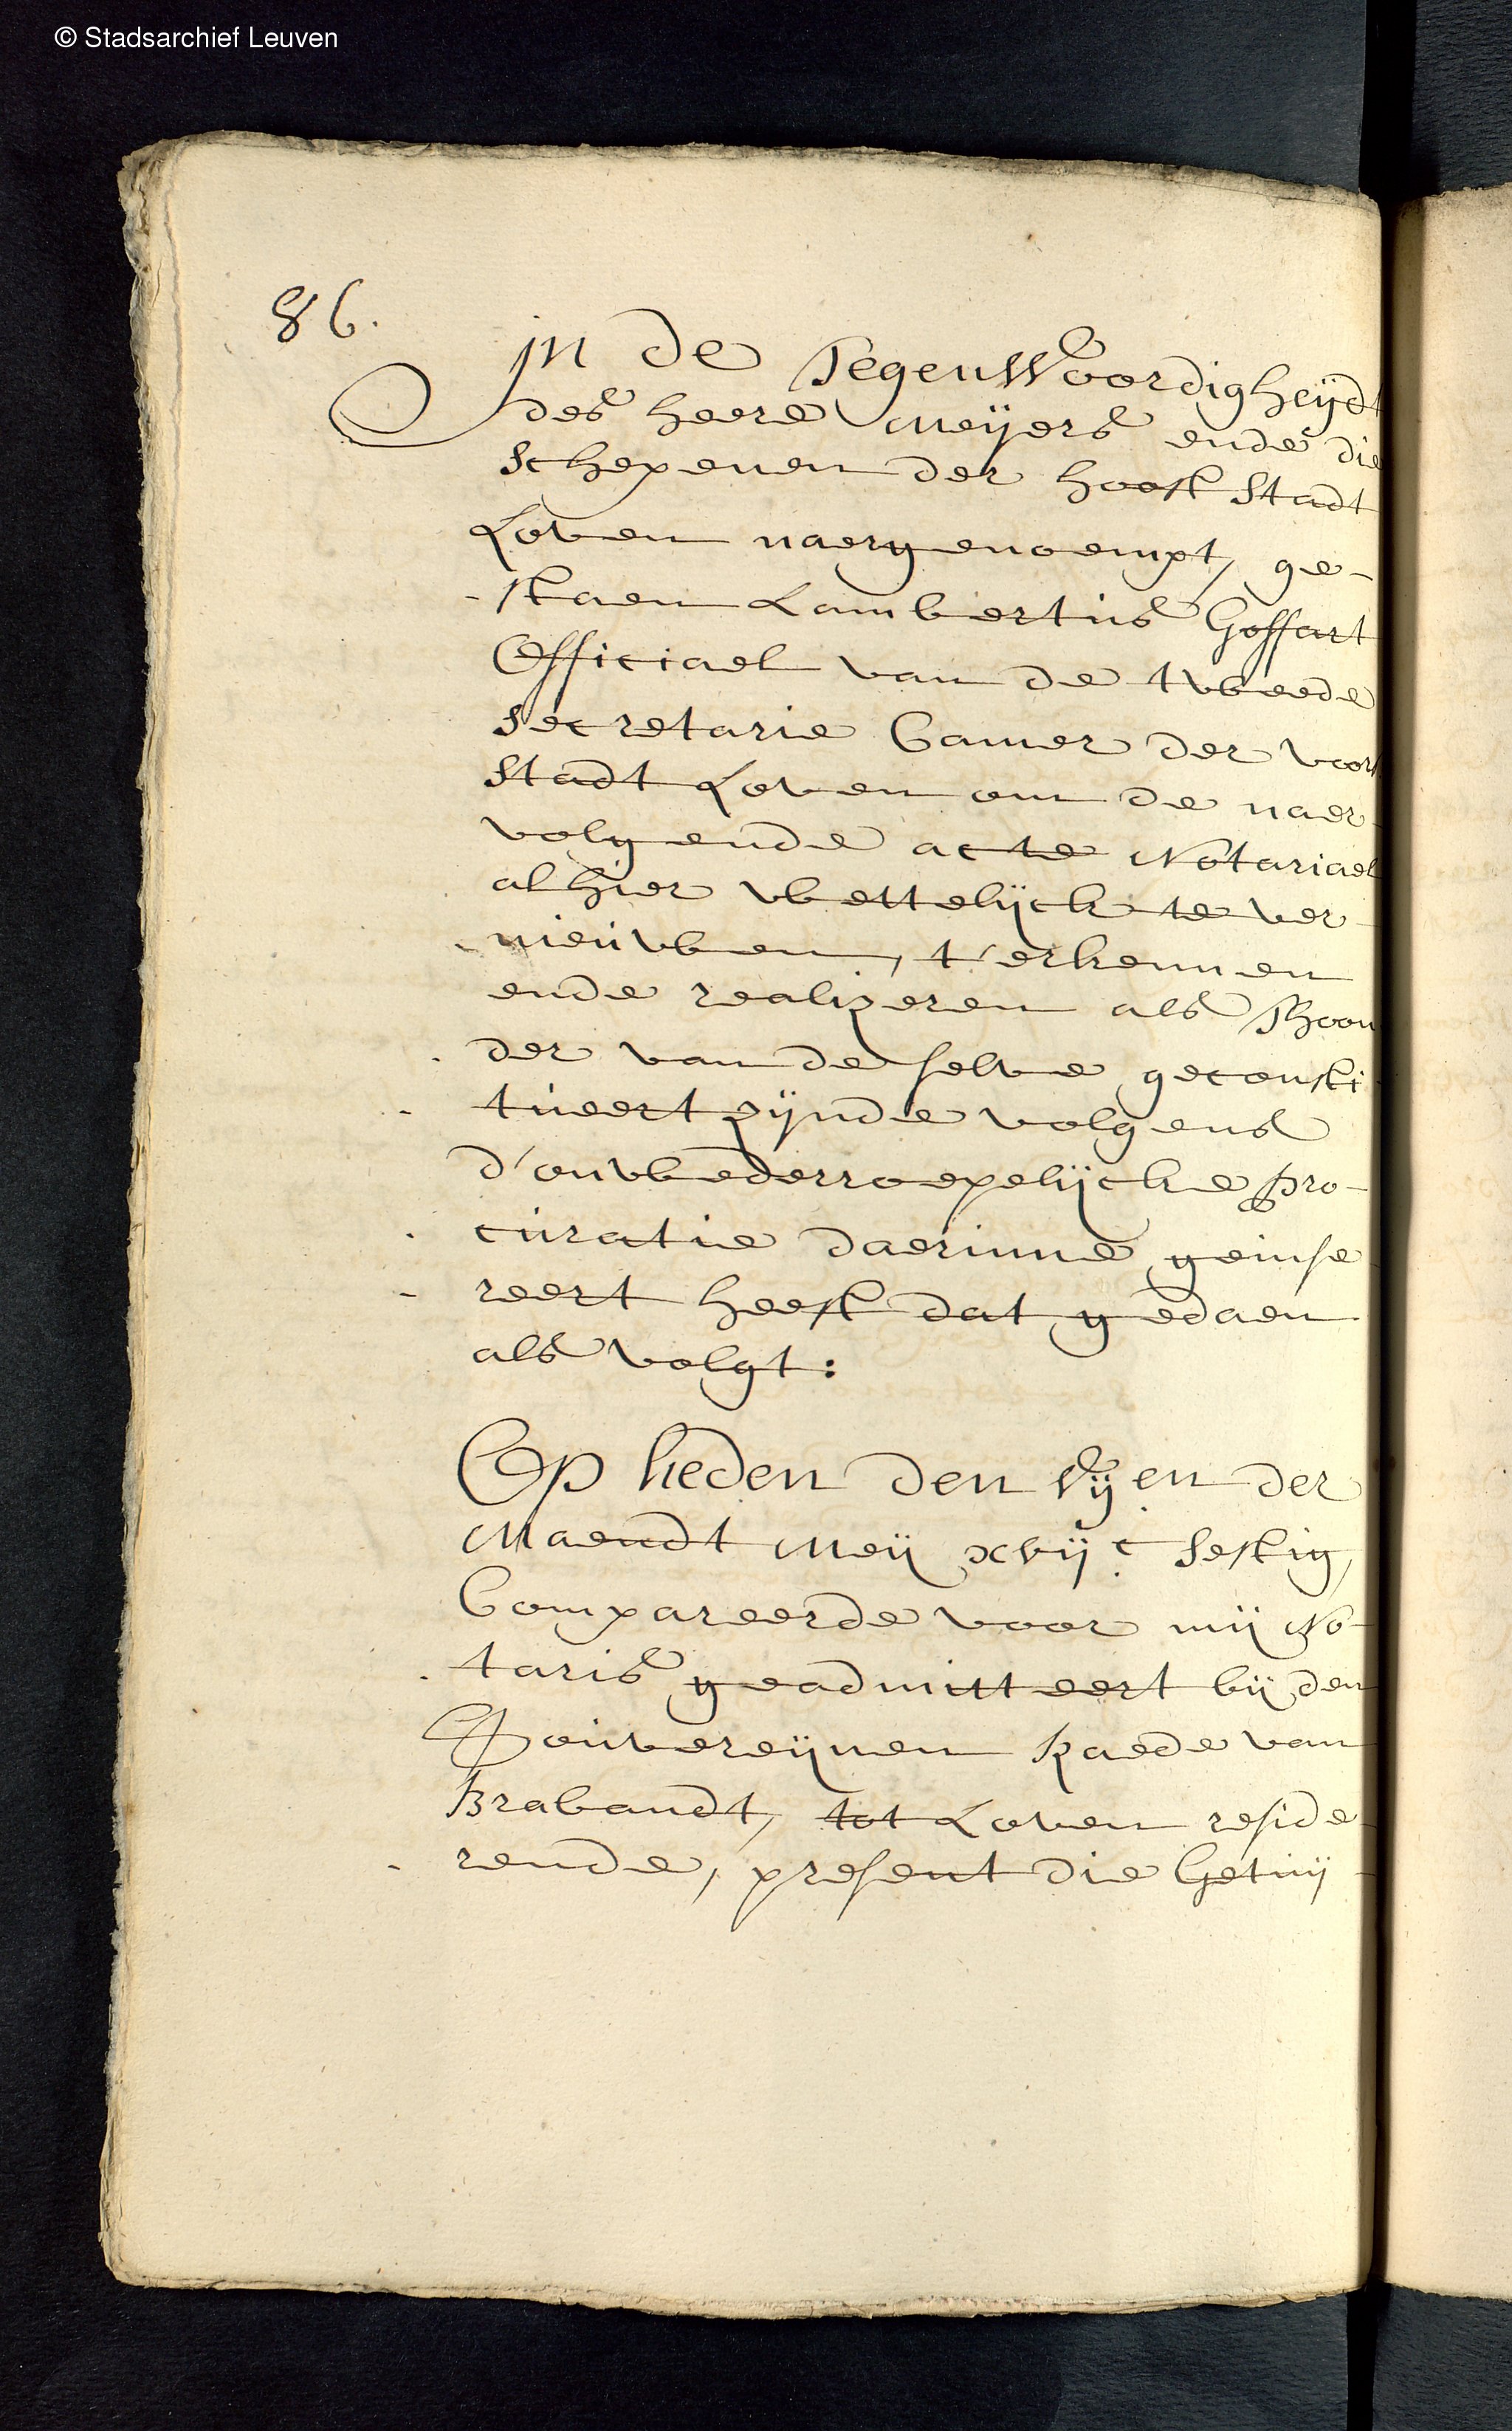 © Stadsarchief Leuven
86.
In de Tegenwoordigheijdt
des heere Meijers ende die
Schepenen der hooft Stadt
Loven naergenoempt, ge-
-staen Lambertus Goffart
Officiael van de tweede
Secretarie Camer der voors
Stadt Loven om de naer-
volgende acte Notariael
alhier wettelijck te ver-
-nieuwen, t'erkennen
ende realizeren als Thoon
der van de selve geconsti-
-tueert zijnde volgens
d'onwederroepelijcke pro-
-curatie daerinne geinse-
-reert heeft dat gedaen
als volgt:
Op heden den vijen der
Maendt Meij xvijc sestig,
Compareerde voor mij No-
-taris geadmitteert bij den
Souvereijnen Raede van
Brabandt, tot Loven reside-
-rende, present die Getuij-